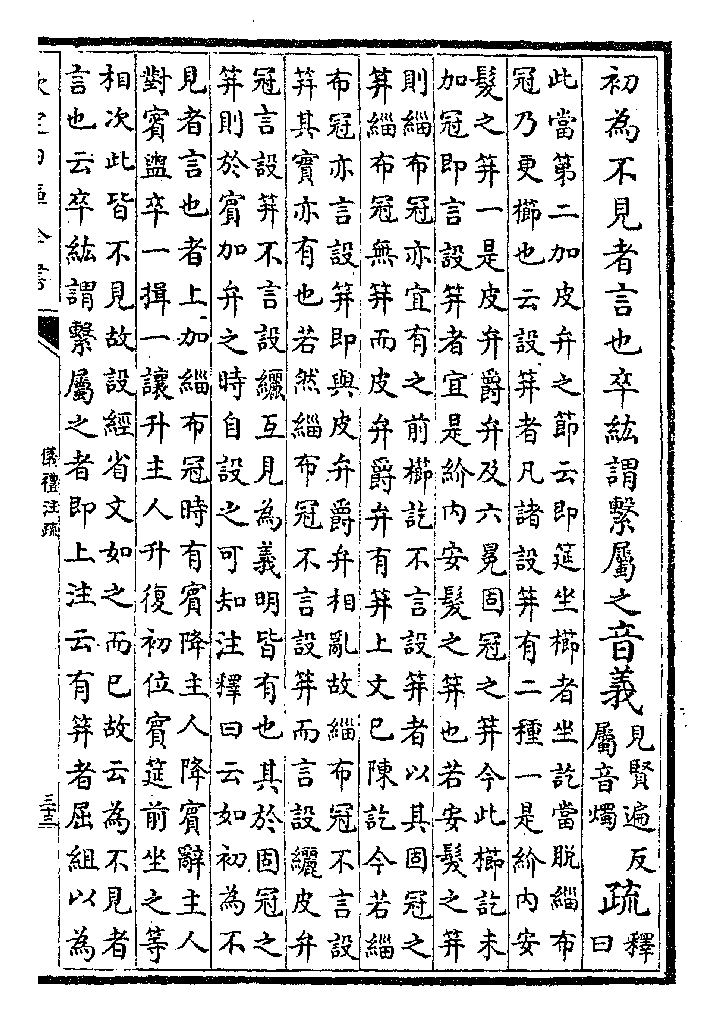 初為不見者言也卒紘謂繫屬之音義見賢遍反
屬音燭
疏釋曰
此當第二加皮弁之節云即筵坐櫛者坐訖當脫緇布
冠乃更櫛也云設筓者凡諸設筓有二種一是紒内安
髮之筓一是皮弁爵弁及六冕固冠之筓今此櫛訖未
加冠即言設筓者宜是紒内安髮之筓也若安髮之筓
則緇布冠亦宜有之前櫛訖不言設筓者以其固冠之
筓緇布冠無筓而皮弁爵弁有筓上文已陳訖今若緇
布冠亦言設筓即與皮弁爵弁相亂故緇布冠不言設
筓其實亦有也若然緇布冠不言設筓而言設纚皮弁
冠言設筓不言設纚互見為義明皆有也其於固冠之
筓則於賓加弁之時自設之可知注釋曰云如初為不
見者言也者上加緇布冠時有賓降主人降賓辭主人
對賓盥卒一揖一讓升主人升復初位賓筵前坐之等
相次此皆不見故設經省文如之而已故云為不見者
言也云卒紘謂繫屬之者即上注云有筓者屈組以為
欽定四庫全書
儀禮注疏
三十三